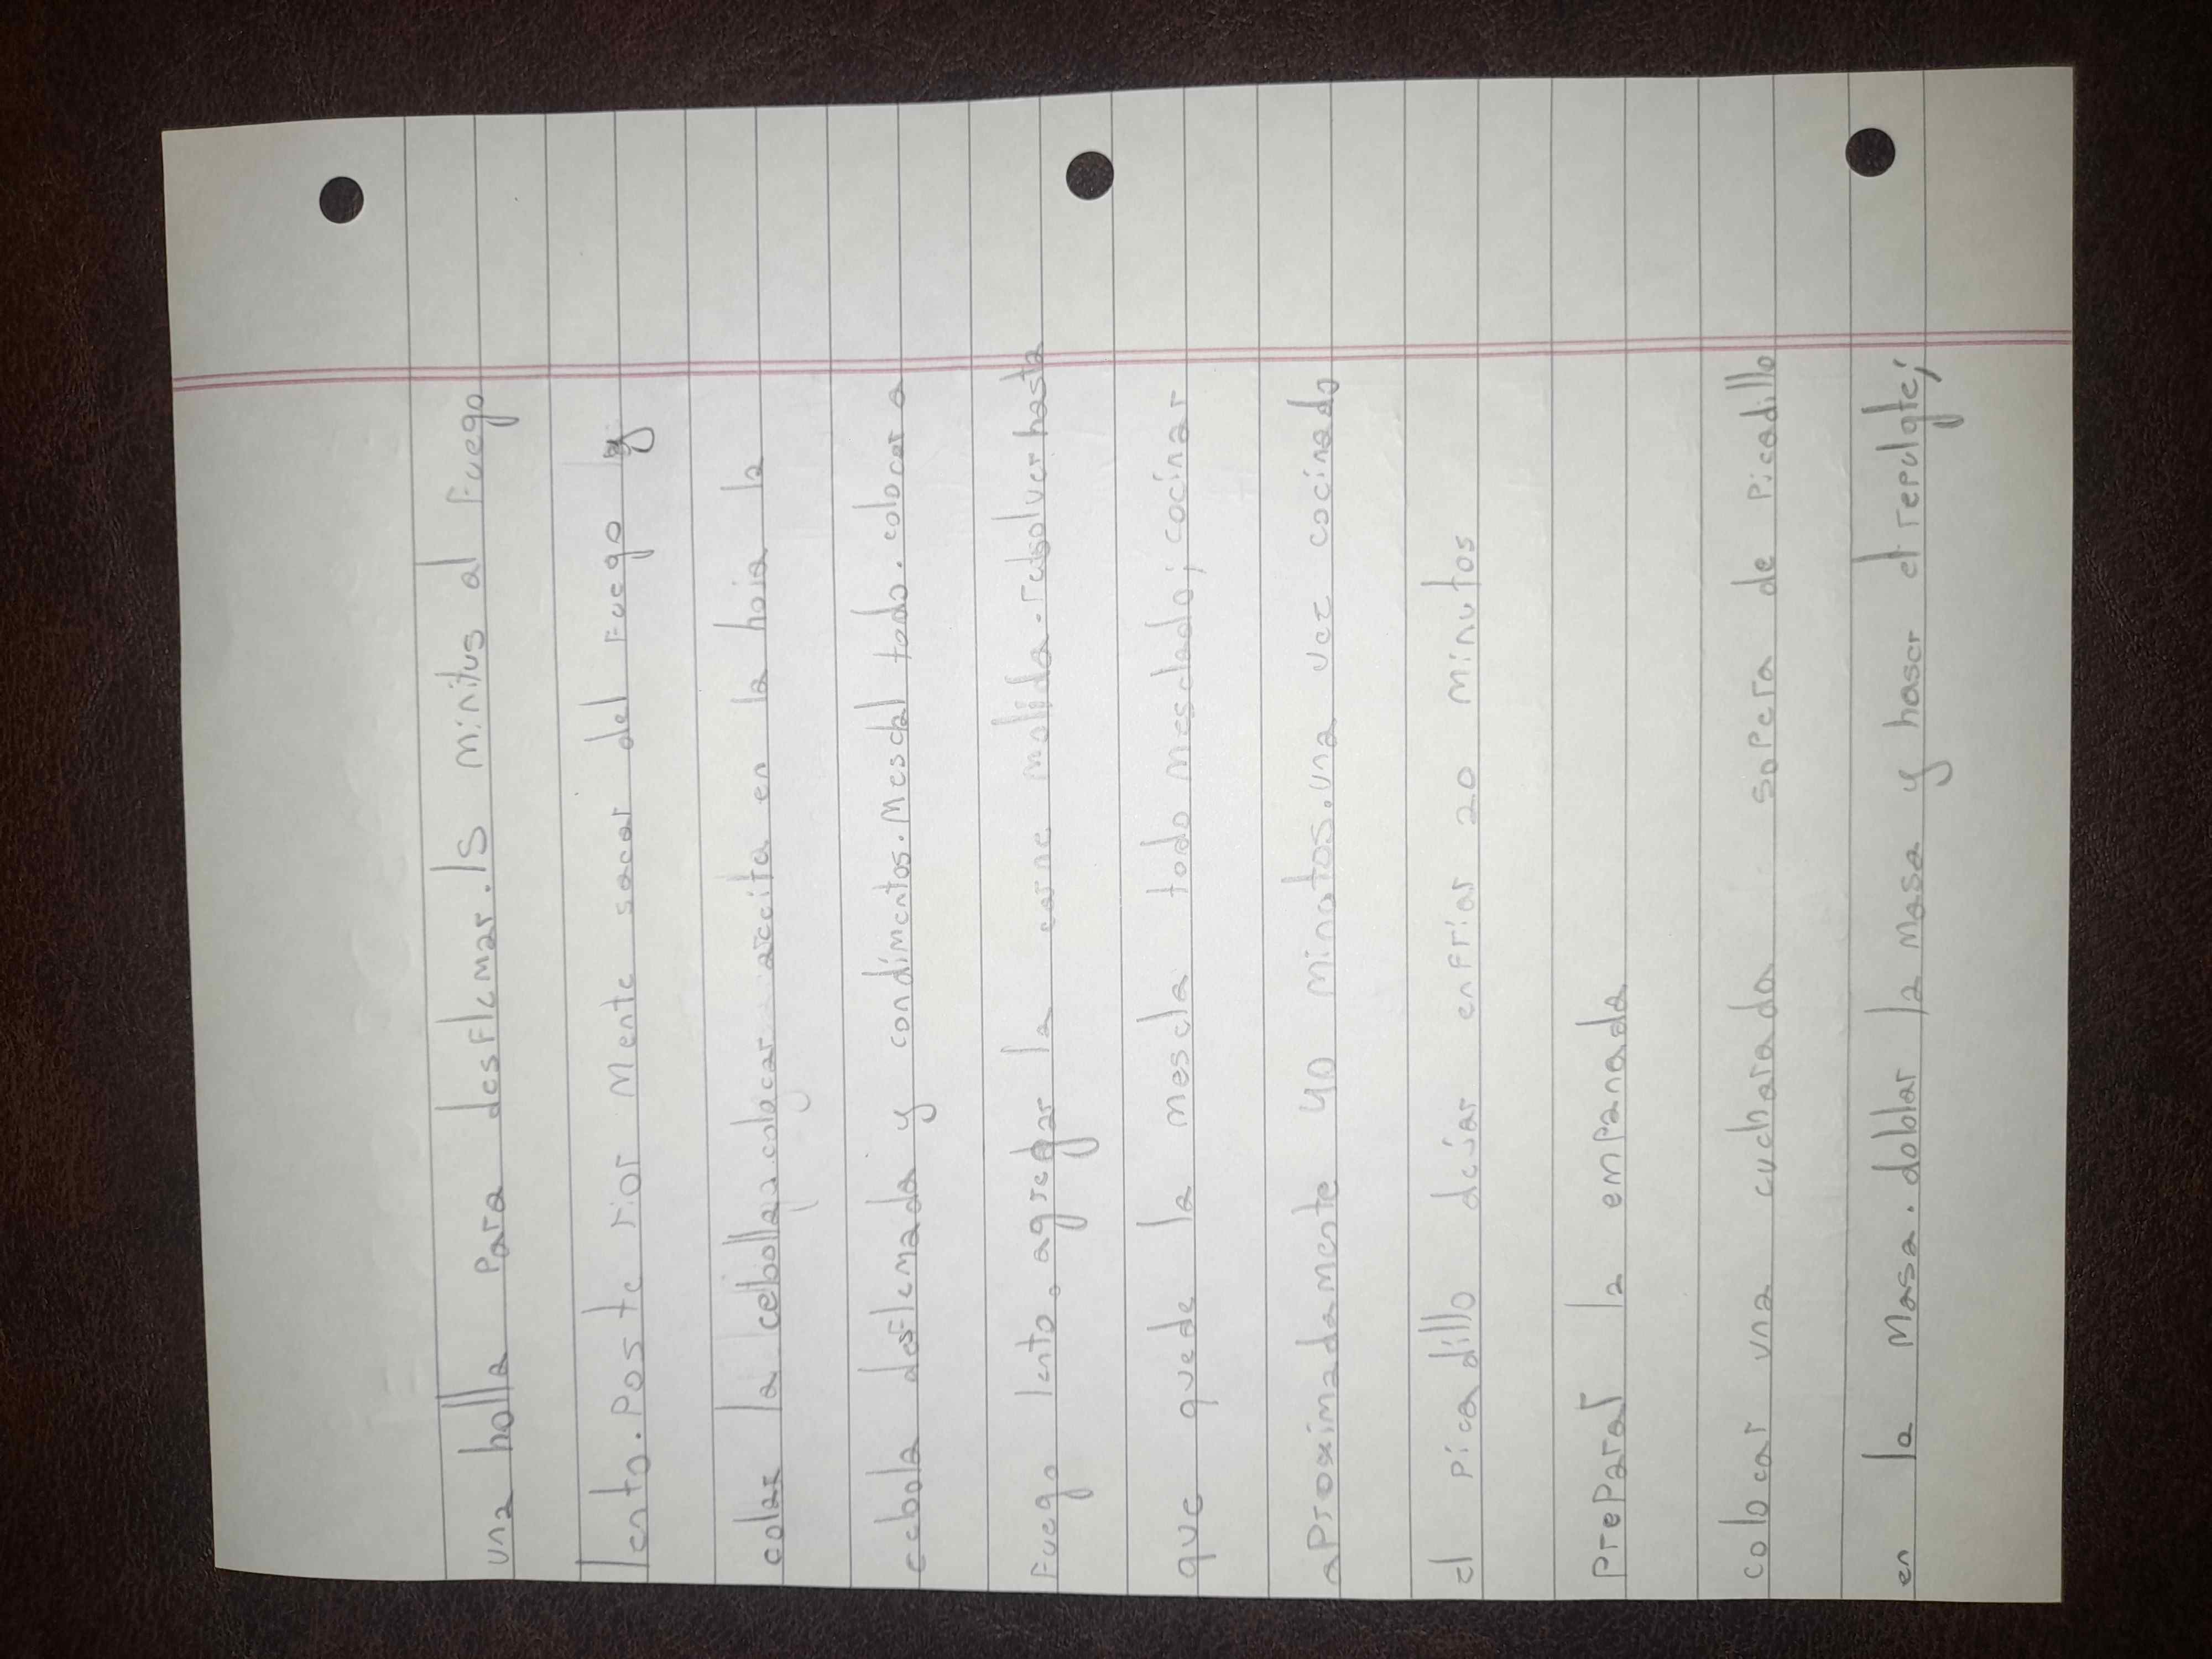 una holla para desflemar. 15 minitus al fuego
lento. Poste rior mente sacar del fuego y
colar la cebolla, colocar arceita en la hoia la
cebola desflemada y condimentos. Mesclar todo. colocar a
fuego lento, agregar la carne molida. resolver hasta
que quede la mescla todo mesclado; cocinar
aproximadamente 40 minotos. una vez cocinado
el picadillo dejar enfriar 20 minutos
preparar la empanada
colocar una cucharada sopera de picadillo
en la masa. doblar la masa y haser el repulgte;